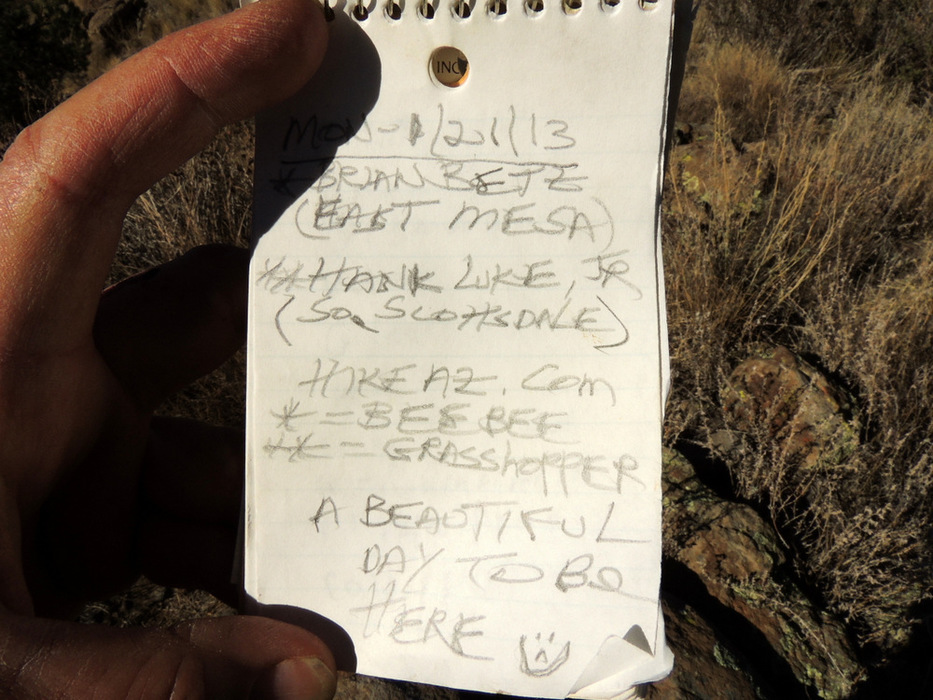 INC
MON-1/21/13
*BRIAN BETZ
(EAST MESA)
**HANK LUKE, JR
(So. SCOttSDALE)
HIKEAZ.Com
*=BEEBEE
**=GRASShOPPER
A BEAUTIFUL
DAY TO Be
HERE